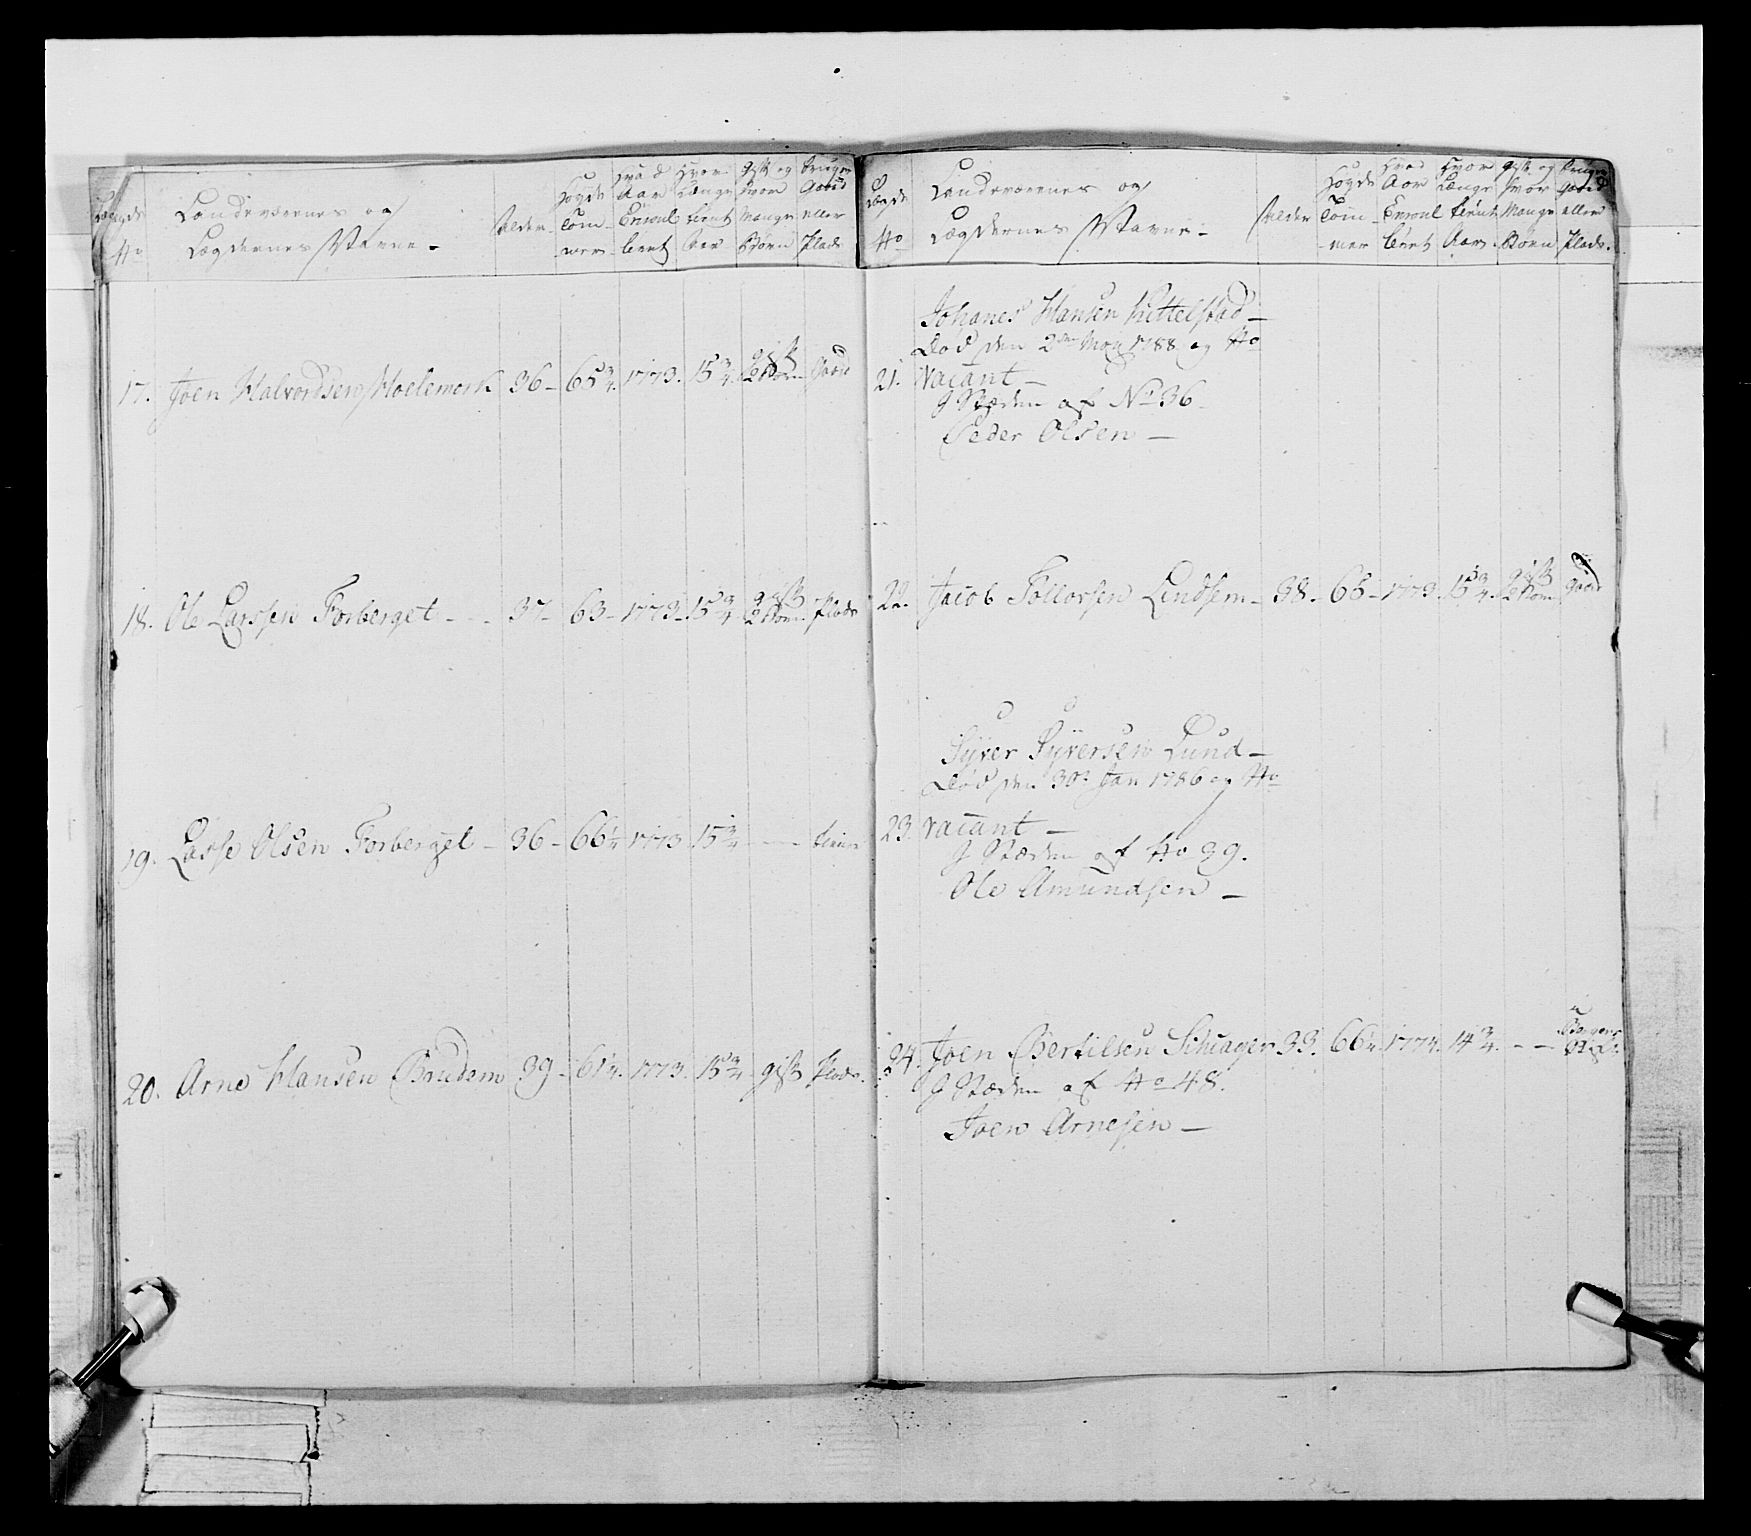 Lægde
No
Landeværnes og
Lægdernes Navne -
Alder
Høyde
Tom-
mer
Hvad
Aar
Enroul
leret
Hvor
Længe
tient
Aar
Gift og
hvor
Mange
Børn
Bruger
Gaard
eller
Plads
17. Joen Halvordsen Moelemork 36 - 65 3/4. 1773. 15 3/4. gift 2 Børn Gaard
18. Ole Larssen Forberget - - - 37 - 63 - 1773 - 15 3/4 gift 2 Børn Plads
19. Lasse Olsen Forberget - 36 - 66 1/4 1773 15 3/4 - - - tiener
20. Arne Hansen Brudem 39 - 61 1/4. 1773. 15 3/4 gift Plads.
Lægde
No
Landeværnes og
Lægdernes Navne -
Alder
Høyde
Tom-
mer
Hvad
Aar
Enroul
leret
Hvor
Længe
tient
Aar
Gift og
hvor
Mange
Børn
Bruger
Gaard
eller
Plads.
Johanes Hansen Kittelstad -
Død den 2den May 1788 og No
21. vacant -
J Stæden af No 36 -
Peder Olsen -
22. Jacob Tollorsen Lindsem - 38 - 65 - 1773. 15 3/4. gift 2 Børn Gaard
Syver Syversen Lund -
Død den 30te Jan 1786 og No
23. vacant -
J Stæden af No 39.
Ole Amundsen -
24. Joen Bertilsen Schiager 33. 66 1/4. 1774. 14 3/4. - -
J Stæden af No 48.
Joen Arnesen -